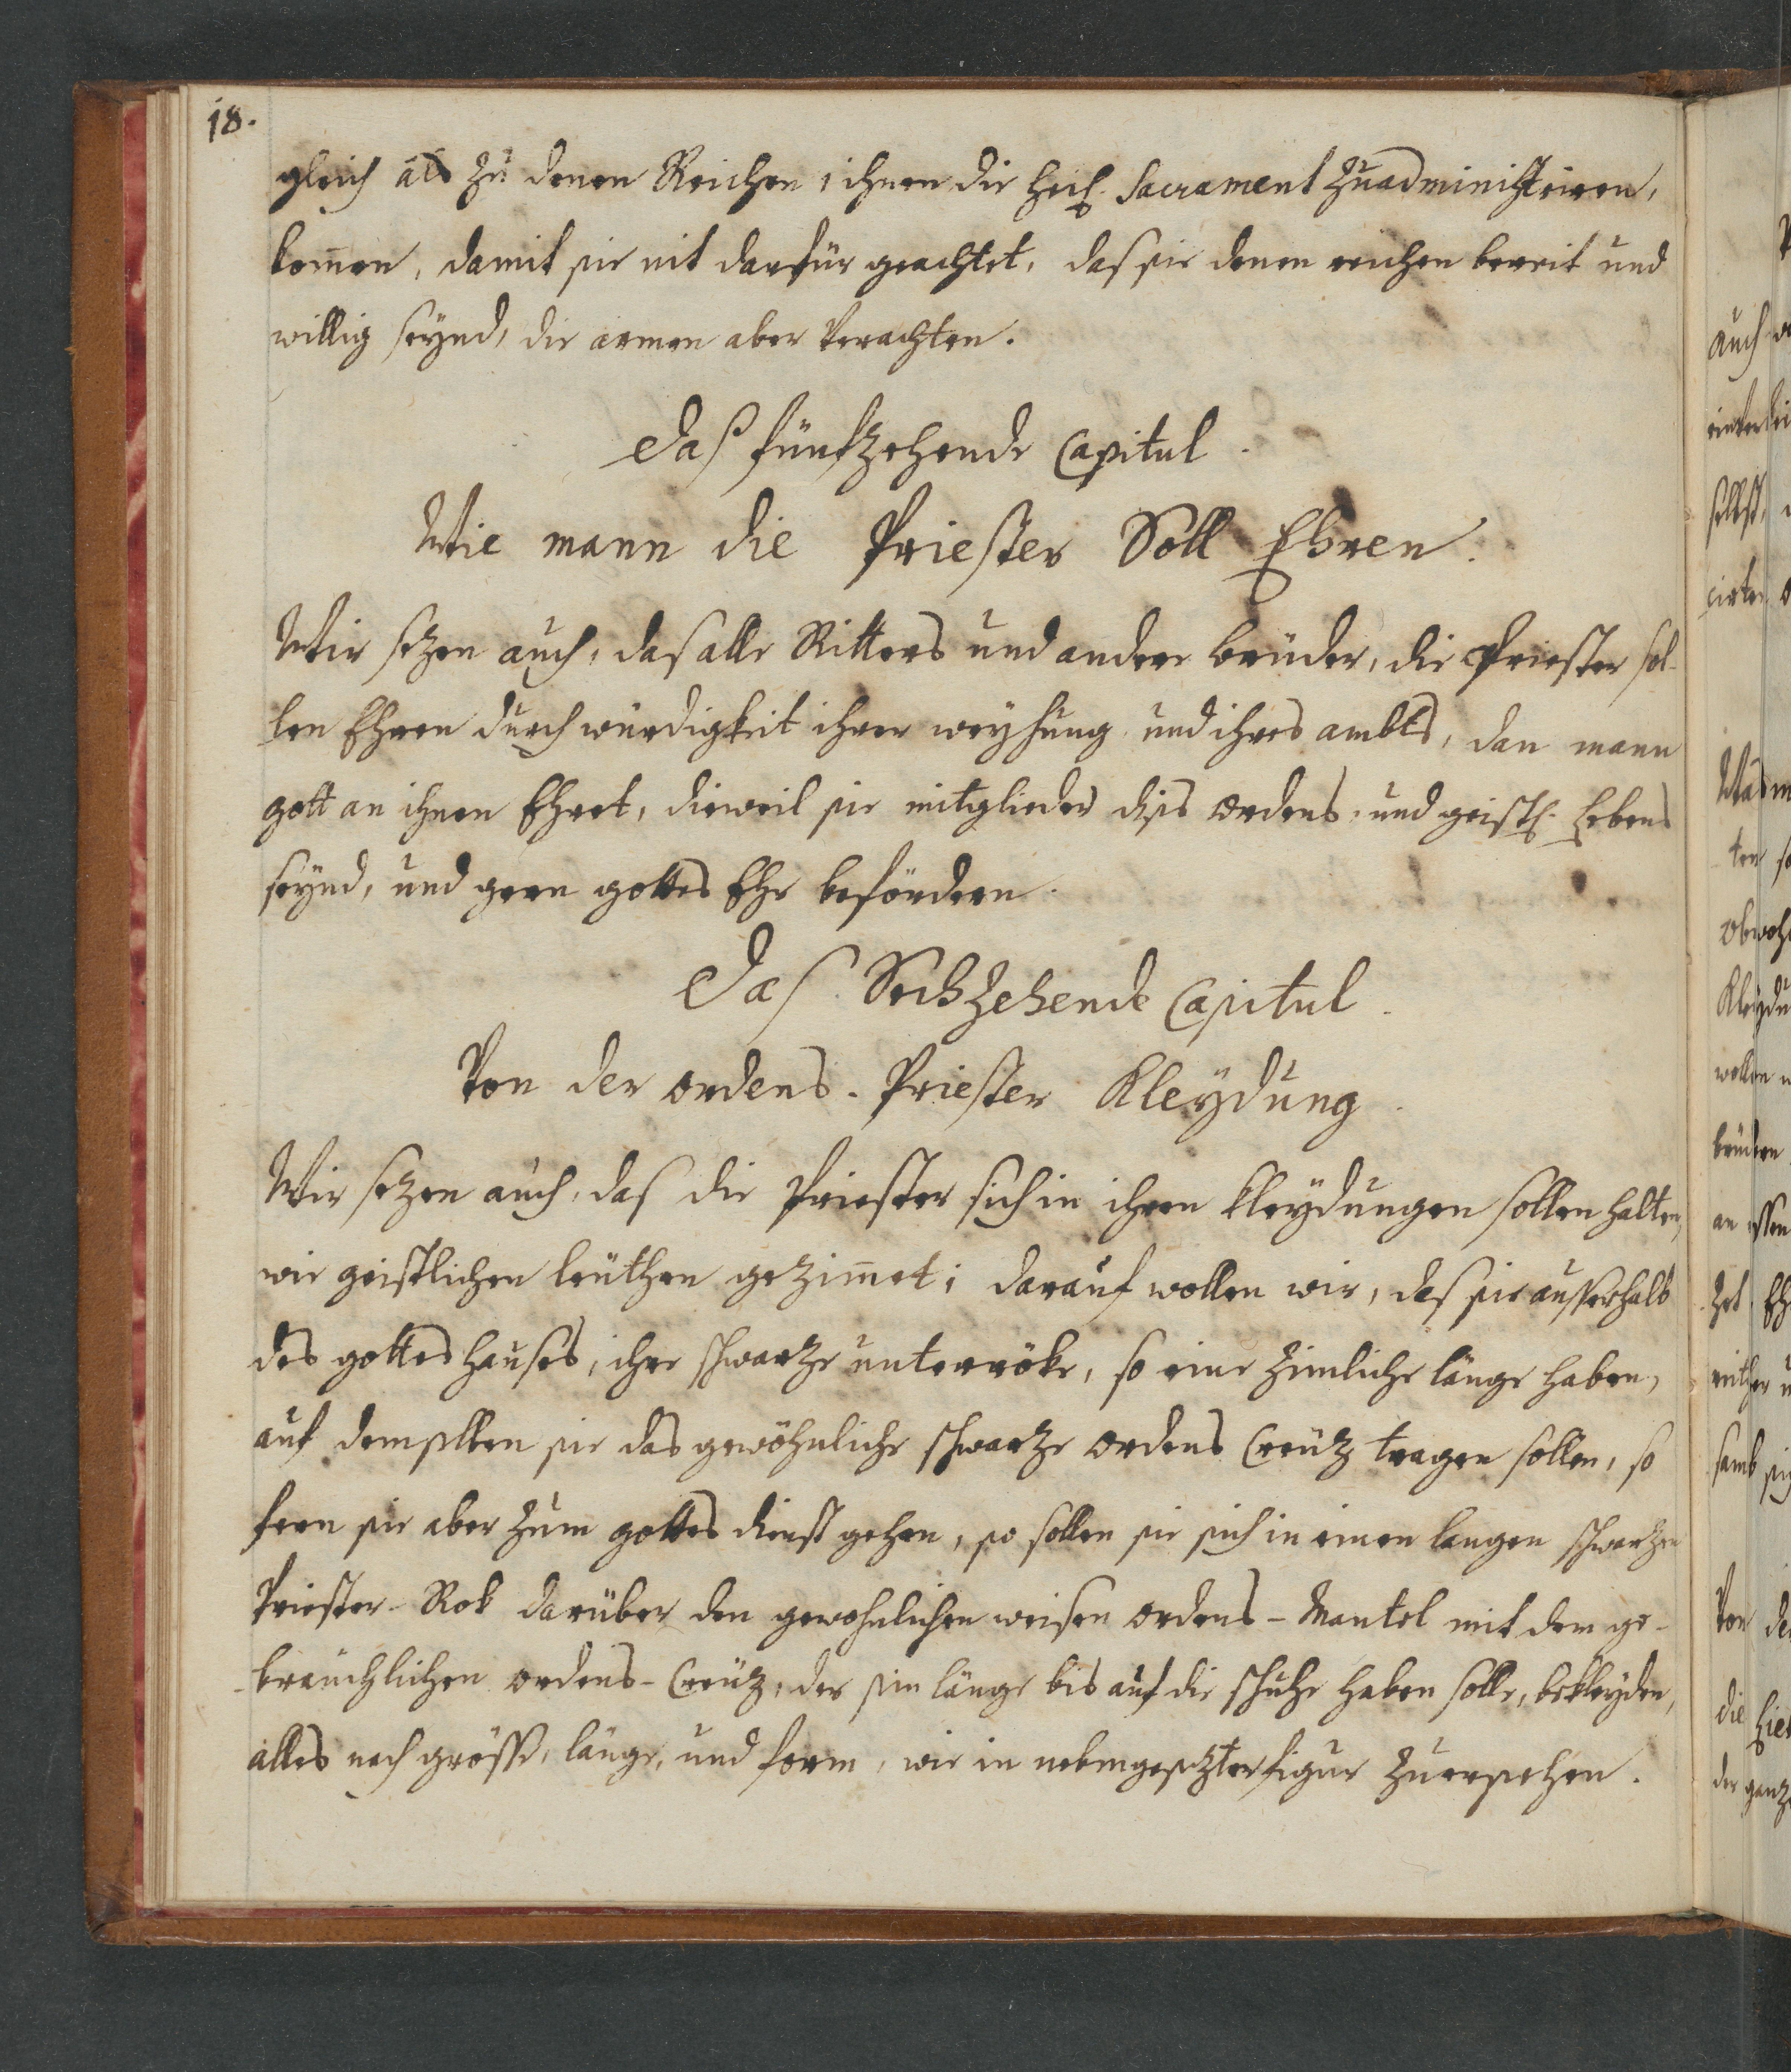 18.
gleich als zu denen Reichen, ihnen die heil. Sacrament zu administriren,
kom̄en, damit sie nit darfür geachtet, das sie denen reichen bereit und
willig seÿnd, die armen aber verachten.
Daß fünfzehende Capitul.
Wie mann die Priester Soll Ehren.
Wir sezen auch, das alle Ritters und andere brüder, die Priester sol-
len Ehren durch würdigkeit ihrer weÿhung und ihres ambts, dan mann
gott an ihnen Ehret, dieweil sie mitglieder dises ordens, und geistl. Lebens
seÿnd, und gern gottes Ehr befördern.
Das Sechzehende Capitul.
Von der ordens-Priester Kleÿdung.
Wir sezen auch, das die Priester sich in ihren kleÿdungen sollen halten,
wie geistlichen leüthen gezim̄et; darauf wollen wir, das sie ausserhalb
des gottes hauses, ihre schwarze unterröke, so eine zimliche länge haben,
auf demselben sie das gewöhnliche schwarze ordens Creüz tragen sollen, so
fern sie aber zum gottes dienst gehen, so sollen sie sich in einen langen schwarzen
Priester-Rok darüber den gewohnlichen weisen ordens-Mantel mit dem ge-
bräuchlichen ordens-Creüz, der sein länge bis auf die schuhe haben solle, bekleÿden,
alles nach grösse, länge, und form, wie in nebengesezter figur zuersehen.
auch
selbst,
obwohl
Kleÿdu
wollen
brüdern
an
Von de
die
der ganz